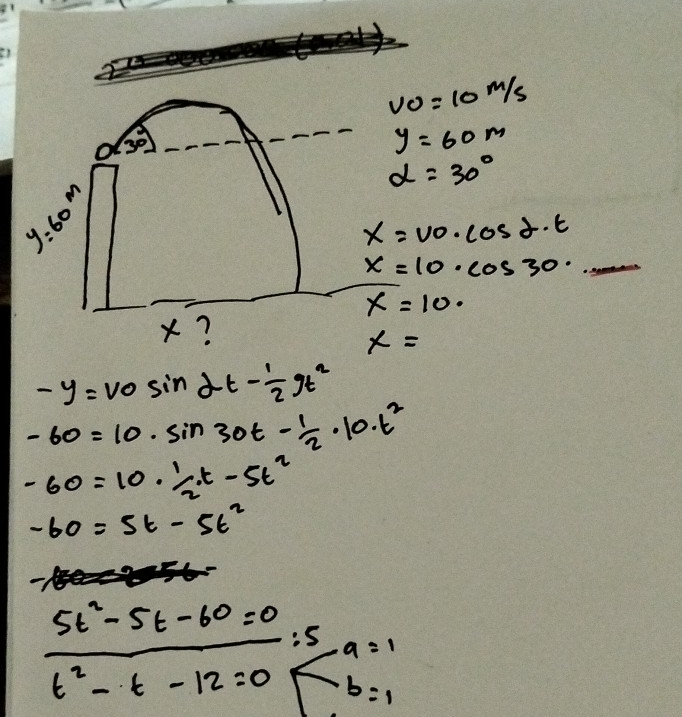 α 30°
y=60 m
x ?
vo = 10 m/s
y = 60 m
α = 30°
x = vo . cos α . t
x = 10 . cos 30 . ........
x = 10 .
x =
- y = vo sin α t - 1/2 gt²
- 60 = 10 . sin 30t - 1/2 . 10 . t²
- 60 = 10 . 1/2 . t - 5t²
- 60 = 5t - 5t²
5t² - 5t - 60 = 0
: 5
t² - t - 12 = 0
a = 1
b = 1